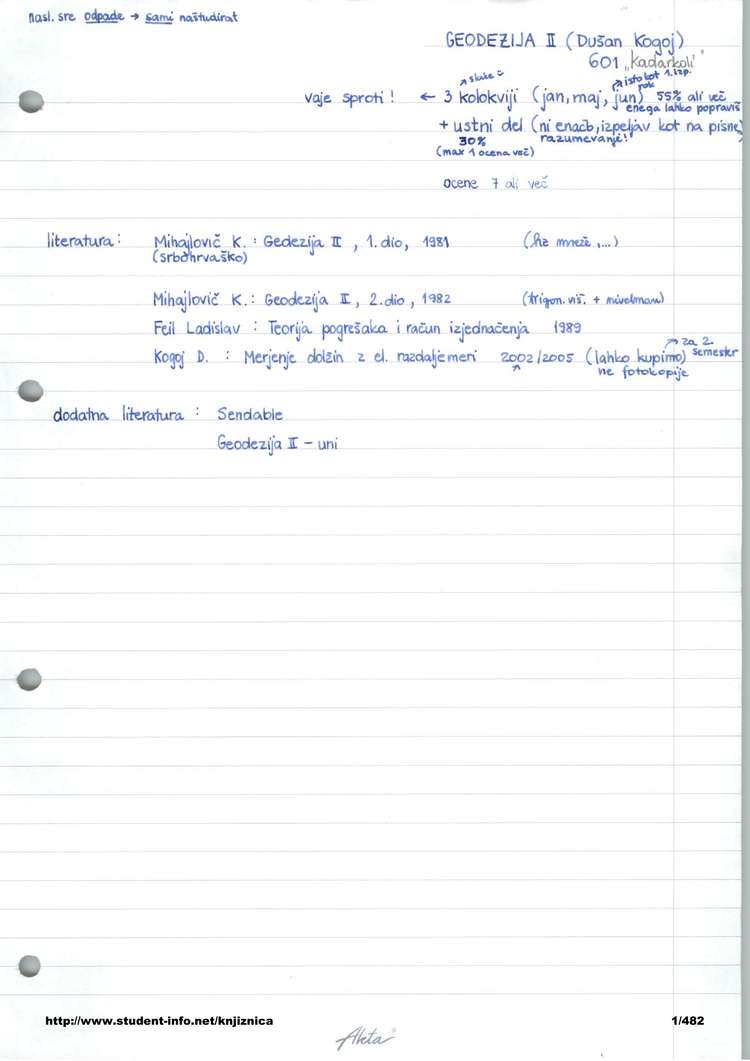 nasl. sre odpade → sami naštudirat
GEODEZIJA II (Dušan Kogoj)
601 „kadarkoli"
↗ isto kot 1. izp. rok
vaje sproti! ← 3 kolokviji (jan, maj, jun) 55% ali več
enega lahko popraviš
+ ustni del (ni enačb, izpeljav kot na pisne)
30% razumevanje!
(max 1 ocena več)
ocene 7 ali več
literatura: Mihajlovič K.: Gedezija II, 1. dio, 1981
(srbohrvaško)
Mihajlovič K.: Geodezija II, 2. dio, 1982 (trigon. viš. + nivelman)
Feil Ladislav : Teorija pogrešaka i račun izjednačenja 1989
↗ za 2. semester
Kogoj D. : Merjenje dolžin z el. razdaljemeri 2002/2005 (lahko kupimo)
↑ ne fotokopije
dodatna literatura : Sendable
Geodezija II - uni
http://www.student-info.net/knjiznica 1/482
Akta